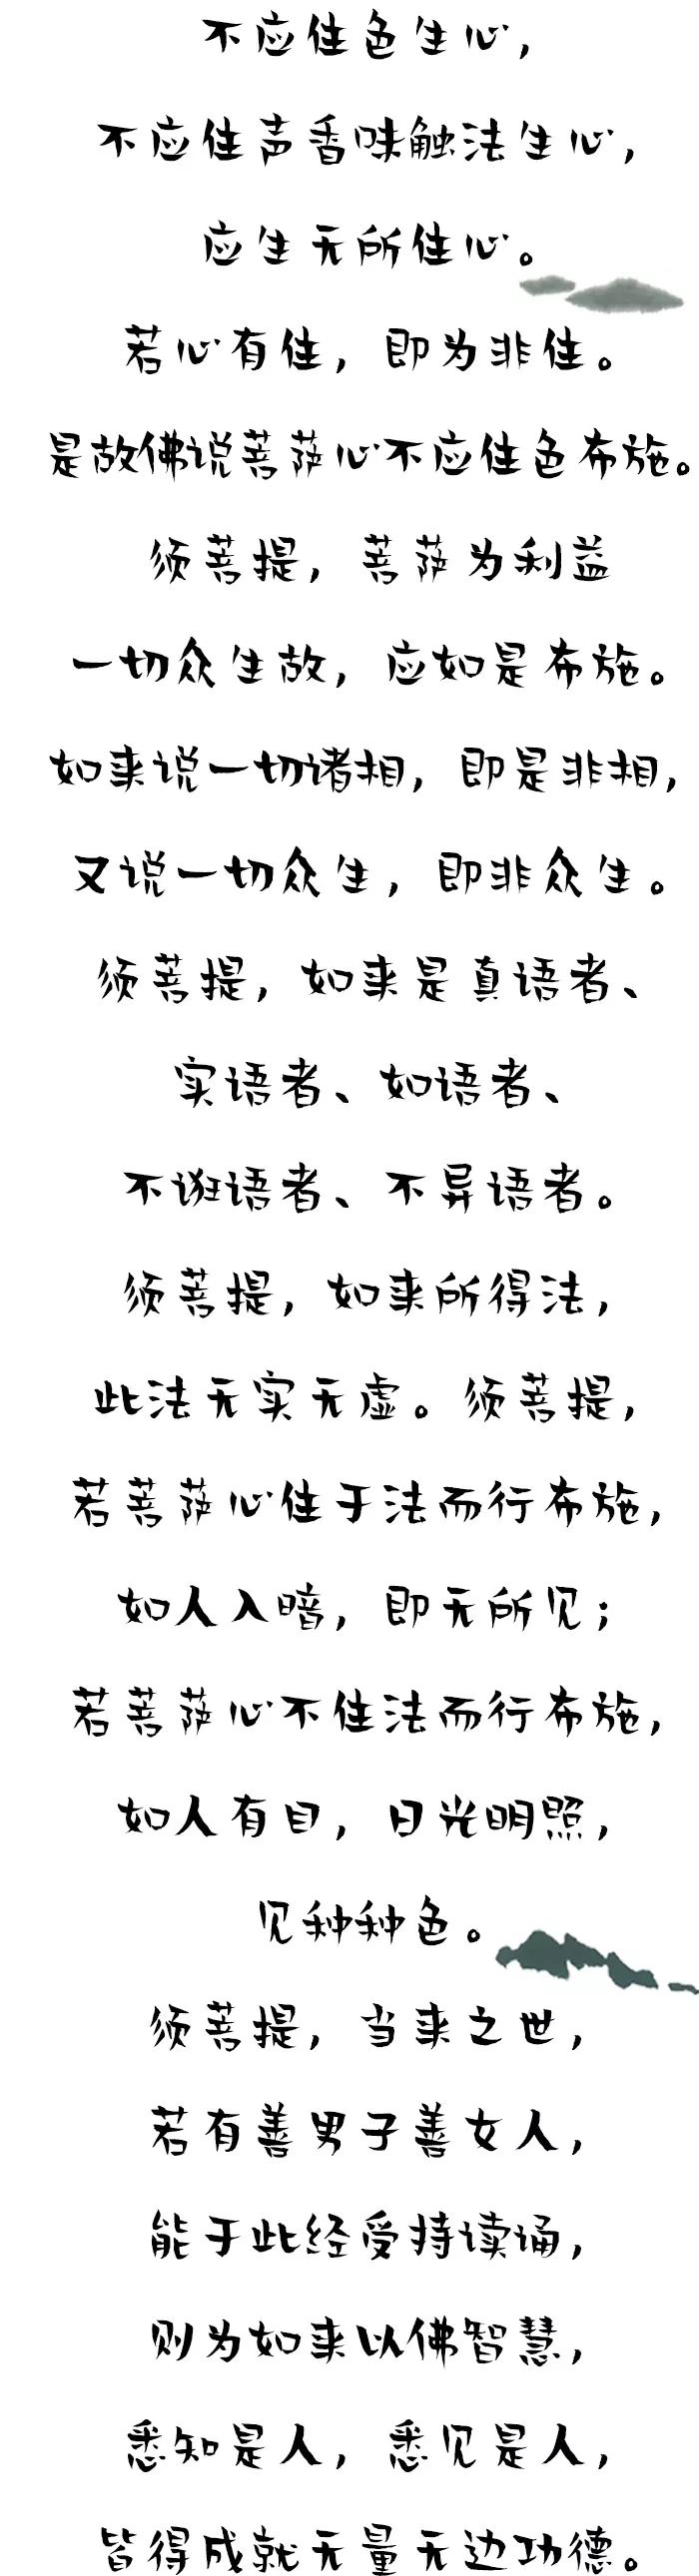 不应住色生心，
不应住声香味触法生心，
应生无所住心。
若心有住，即为非住。
是故佛说菩萨心不应住色布施。
须菩提，菩萨为利益
一切众生故，应如是布施。
如来说一切诸相，即是非相，
又说一切众生，即非众生。
须菩提，如来是真语者、
实语者、如语者、
不诳语者、不异语者。
须菩提，如来所得法，
此法无实无虚。须菩提，
若菩萨心住于法而行布施，
如人入暗，即无所见；
若菩萨心不住法而行布施，
如人有目，日光明照，
见种种色。
须菩提，当来之世，
若有善男子善女人，
能于此经受持读诵，
则为如来以佛智慧，
悉知是人，悉见是人，
皆得成就无量无边功德。